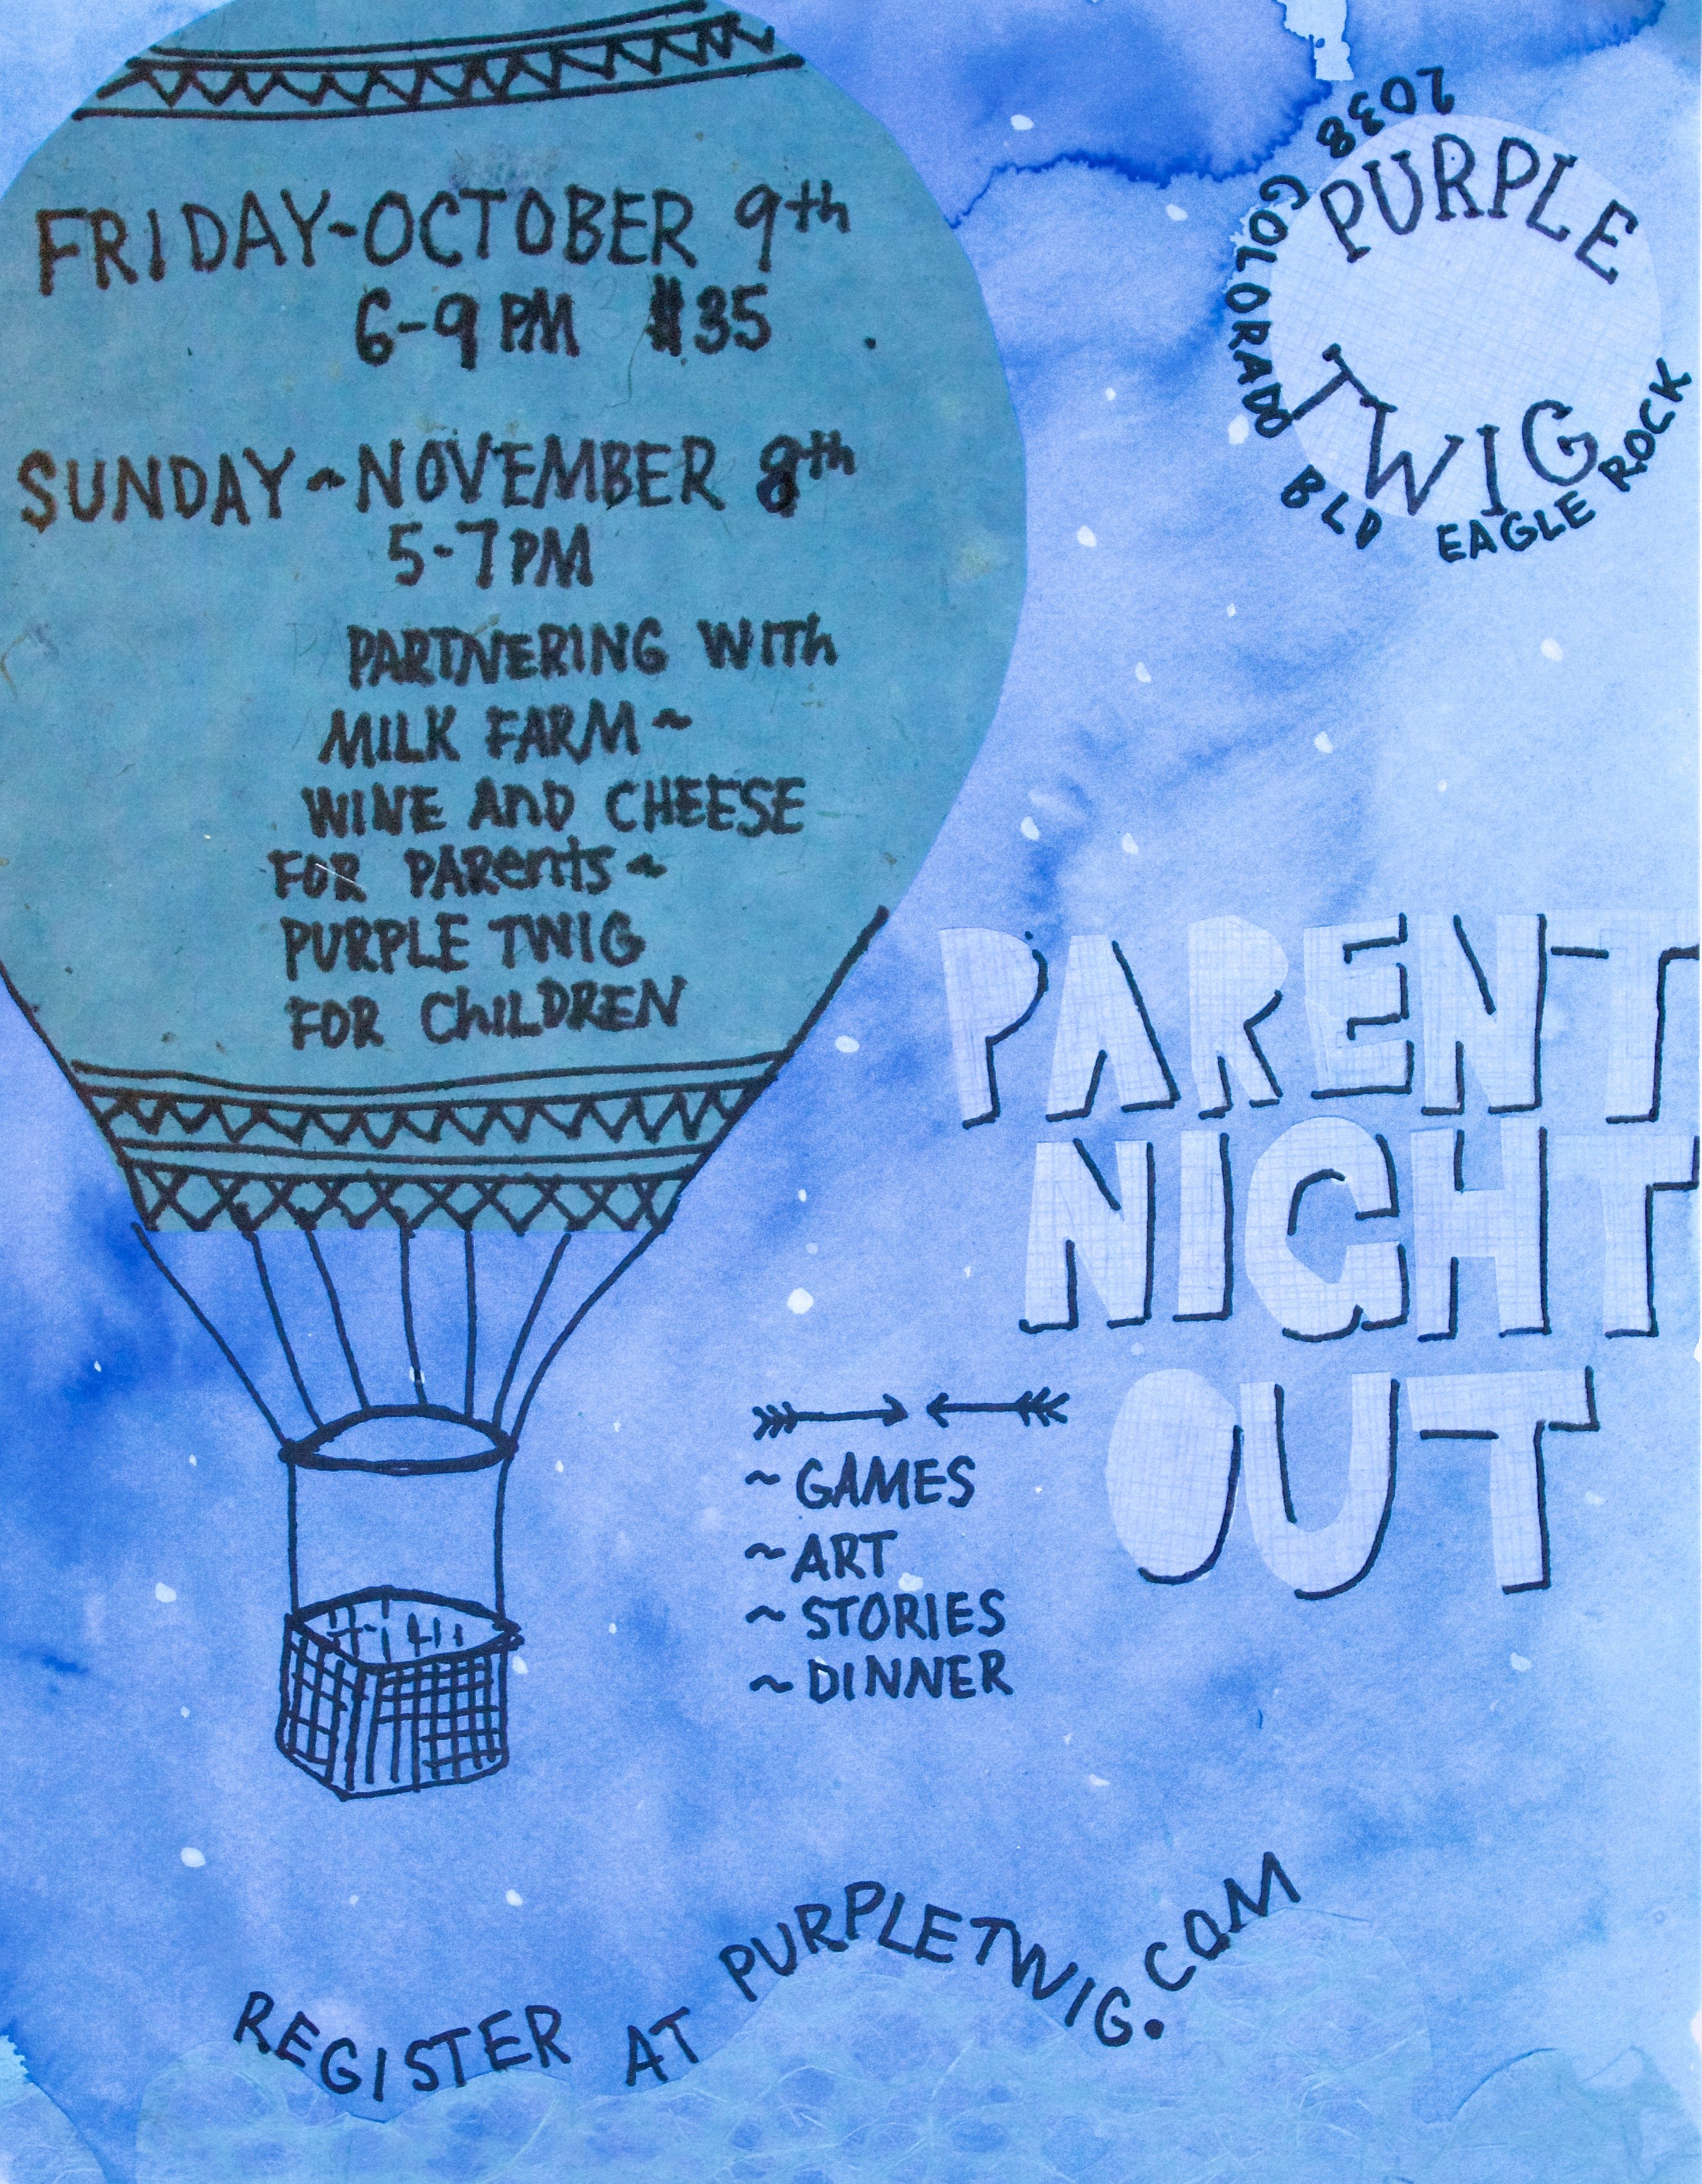 FRIDAY~OCTOBER 9th
6-9 PM $35
SUNDAY~NOVEMBER 8th
5-7PM
PARTNERING WITh
MILK FARM~
WINE AnD CHEESE
FOR PARents~
PURPLE TWIG
FOR ChILDREN
2038 COLORADO BLD EAGLE ROCK
PURPLE
TWIG
PARENT
NIGHT
OUT
~GAMES
~ART
~STORIES
~DINNER
REGISTER AT PURPLETWIG.COM